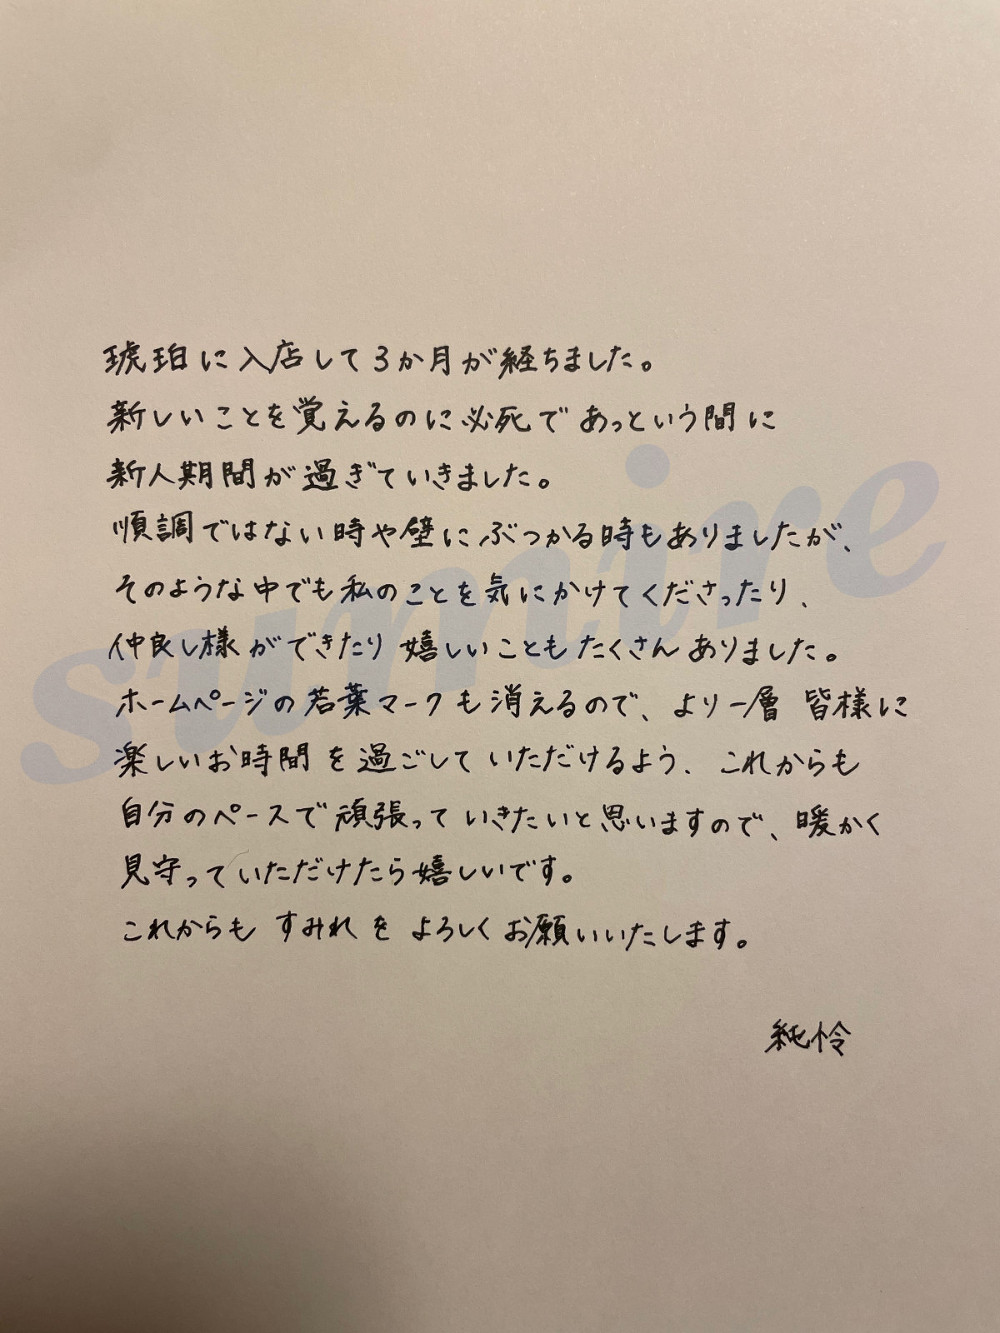 琥珀に入店して3か月が経ちました。
新しいことを覚えるのに必死であっという間に
新人期間が過ぎていきました。
順調ではない時や壁にぶつかる時もありましたが、
そのような中でも私のことを気にかけてくださったり、
仲良し様ができたり嬉しいこともたくさんありました。
ホームページの若葉マークも消えるので、より一層 皆様に
楽しいお時間を過ごしていただけるよう、これからも
自分のペースで頑張っていきたいと思いますので、暖かく
見守っていただけたら嬉しいです。
これからも すみれを よろしくお願いいたします。
純怜
sumire